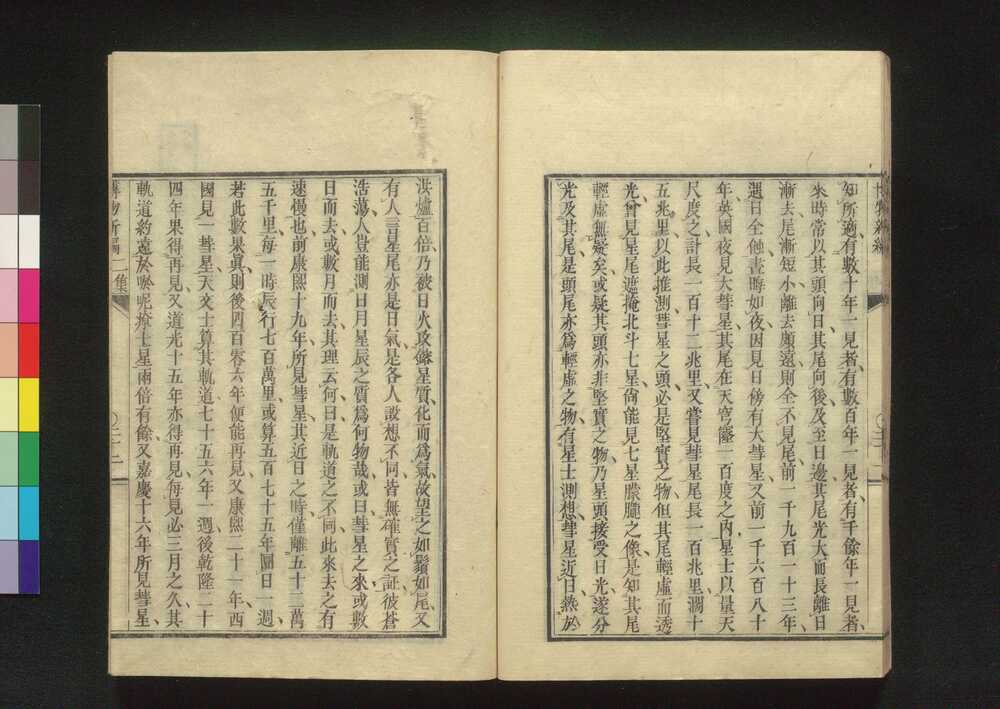 博物新編
知所適有數十年一見者有數百年一見者有千餘年一見者
來時常以其頭向日其尾向後及至日邊其尾光大而長離日
漸去尾漸短小離去頗遠則全不見尾前一千九百一十三年
遇日全蝕晝時如夜因見日傍有大彗星又前一千六百八十
年英國夜見大彗星其尾在天穹躔一百度之內星士以量天
尺度之計長一百十二兆里又嘗見彗星尾長一百兆里濶十
五兆里以此推測彗星之頭必是堅實之物但其尾輕虛而透
光曾見星尾遮掩北斗七星尙能見七星朦朧之像是知其尾
輕虛無疑矣或疑其頭亦非堅實之物乃星頭接受日光遂分
光及其尾是頭尾亦爲輕虛之物有星士測想彗星近日熱於
洪爐百倍乃被日火攻鎔星質化而爲氣故望之如鬚如尾又
有人言星尾亦是日氣是各人設想不同皆無確實之証彼蒼
浩蕩人豈能測日月星辰之質爲何物哉或曰彗星之來或數
日而去或數月而去其理云何曰是軌道之不同此來去之有
速慢也前康熙十九年所見彗星其近日之時僅離五十三萬
五千里每一時辰行七百萬里或算五百七十五年圜日一週
若此數果眞則後四百零六年便能再見又康熙二十一年西
國見一彗星天文士算其軌道七十五六年一週後乾隆二十
四年果得再見又道光十五年亦得再見每見必三月之久其
軌道約遠於嘜呢士星兩倍有餘又嘉慶十六年所見彗星
博物新編二集
二十二